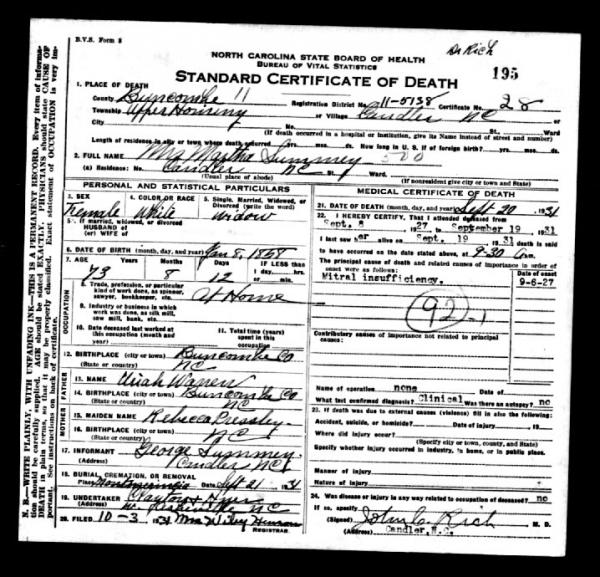 B.V.S. Form 8
Dr Rich
NORTH CAROLINA STATE BOARD OF HEALTH
BUREAU OF VITAL STATISTICS
STANDARD CERTIFICATE OF DEATH
195
1. PLACE OF DEATH
County Buncombe 11 Registration District No. 11-5738 Certificate No. 28
Township Upper Hominy or Village Candler NC or
City No. St. Ward
(If death occurred in a hospital or institution, give its Name instead of street and number)
Length of residence in city or town where death occurred yrs. mos. ds. How long in U. S. if of foreign birth? yrs. mos. ds.
2. FULL NAME Mrs Martha Summey 500
(a) Residence: No. Candler NC St. Ward
(Usual place of abode) (If nonresident give city or town and State)
PERSONAL AND STATISTICAL PARTICULARS
3. SEX 4. COLOR OR RACE 5. Single, Married, Widowed, or Divorced (write the word)
Female White Widow
5a. If married, widowed, or divorced
HUSBAND of
(or) WIFE of
6. DATE OF BIRTH (month, day, and year) Jan 8, 1858
7. AGE Years Months Days IF LESS than
1 day, hrs.
73 8 12 or min.
OCCUPATION
8. Trade, profession, or particular kind of work done, as spinner, sawyer, bookkeeper, etc. At Home
9. Industry or business in which work was done, as silk mill, saw mill, bank, etc.
10. Date deceased last worked at this occupation (month and year)
11. Total time (years) spent in this occupation
12. BIRTHPLACE (city or town) Buncombe Co
(State or country) NC
FATHER
13. NAME Uriah Warren
14. BIRTHPLACE (city or town) Buncombe Co
(State or country) NC
MOTHER
15. MAIDEN NAME Rebecca Pressley
16. BIRTHPLACE (city or town)
(State or country) NC
17. INFORMANT George Summey
(Address) Candler NC
18. BURIAL, CREMATION, OR REMOVAL
Place Date Sept 21 1931
19. UNDERTAKER
(Address) NC
20. FILED 10-3 1931 Mrs Wiley
REGISTRAR.
MEDICAL CERTIFICATE OF DEATH
21. DATE OF DEATH (month, day, and year) Sept 20 1931
22. I HEREBY CERTIFY, That I attended deceased from
Sept. 8 1927 September 19 1931
I last saw her alive on Sept. 19 1931 death is said
to have occurred on the date stated above, at 9-30 am.
The principal cause of death and related causes of importance in order of onset were as follows:
Date of onset
Mitral insufficiency. 9-6-27
92-1
Contributory causes of importance not related to principal cause:
Name of operation none Date of
What test confirmed diagnosis? Clinical Was there an autopsy? no
23. If death was due to external causes (violence) fill in also the following:
Accident, suicide, or homicide? Date of injury 19
Where did injury occur?
(Specify city or town, county, and State)
Specify whether injury occurred in industry, in home, or in public place.
Manner of injury
Nature of injury
24. Was disease or injury in any way related to occupation of deceased? no
If so, specify
(Signed) John C Rich M. D.
(Address) Candler, N.C.
N. B.—WRITE PLAINLY, WITH UNFADING INK—THIS IS A PERMANENT RECORD. Every item of information should be carefully supplied. AGE should be stated EXACTLY. PHYSICIANS should state CAUSE OF DEATH in plain terms, so that it may be properly classified. Exact statement of OCCUPATION is very important. See instructions on back of certificate.